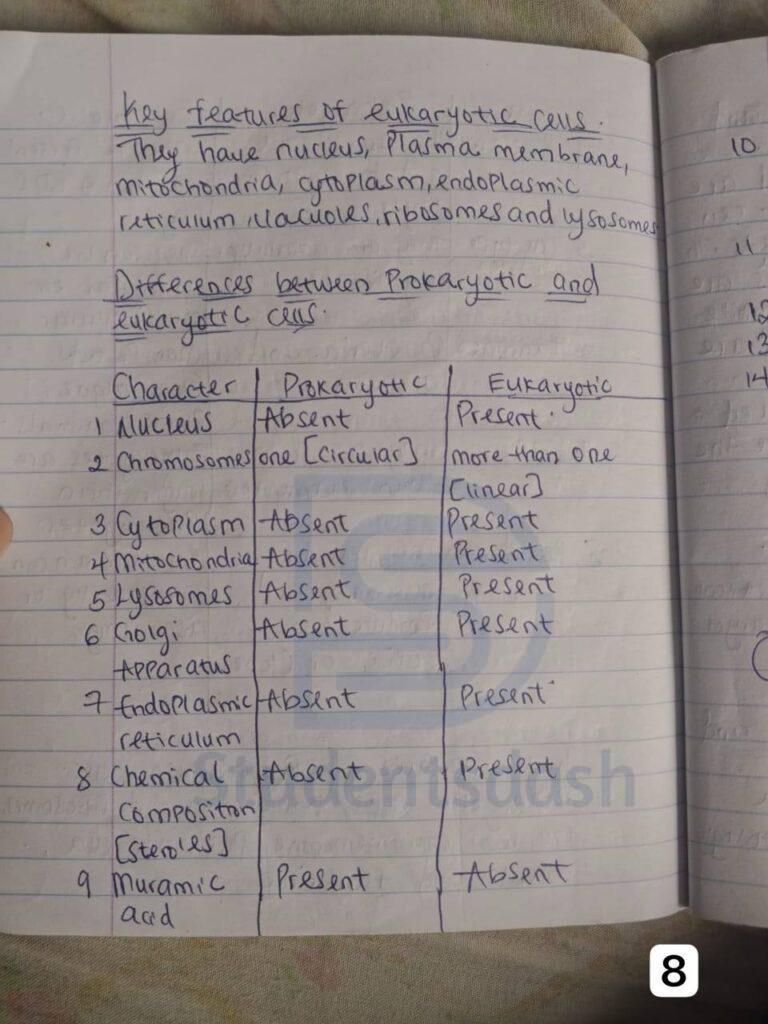 Key features of eukaryotic cells.
They have nucleus, Plasma membrane,
mitochondria, cytoplasm, endoplasmic
reticulum, vacuoles, ribosomes and lysosomes
Differences between Prokaryotic and
eukaryotic cells.
Character Prokaryotic Eukaryotic
1 Nucleus Absent Present.
2 Chromosomes one [circular] more than one
[linear]
3 Cytoplasm Absent Present
4 Mitochondria Absent Present
5 Lysosomes Absent Present
6 Golgi Absent Present
Apparatus
7 Endoplasmic Absent Present
reticulum
8 Chemical Absent Present
Composition
[steroles]
9 Muramic Present Absent
acid
10
11
12
13
14
Studentsdash
8